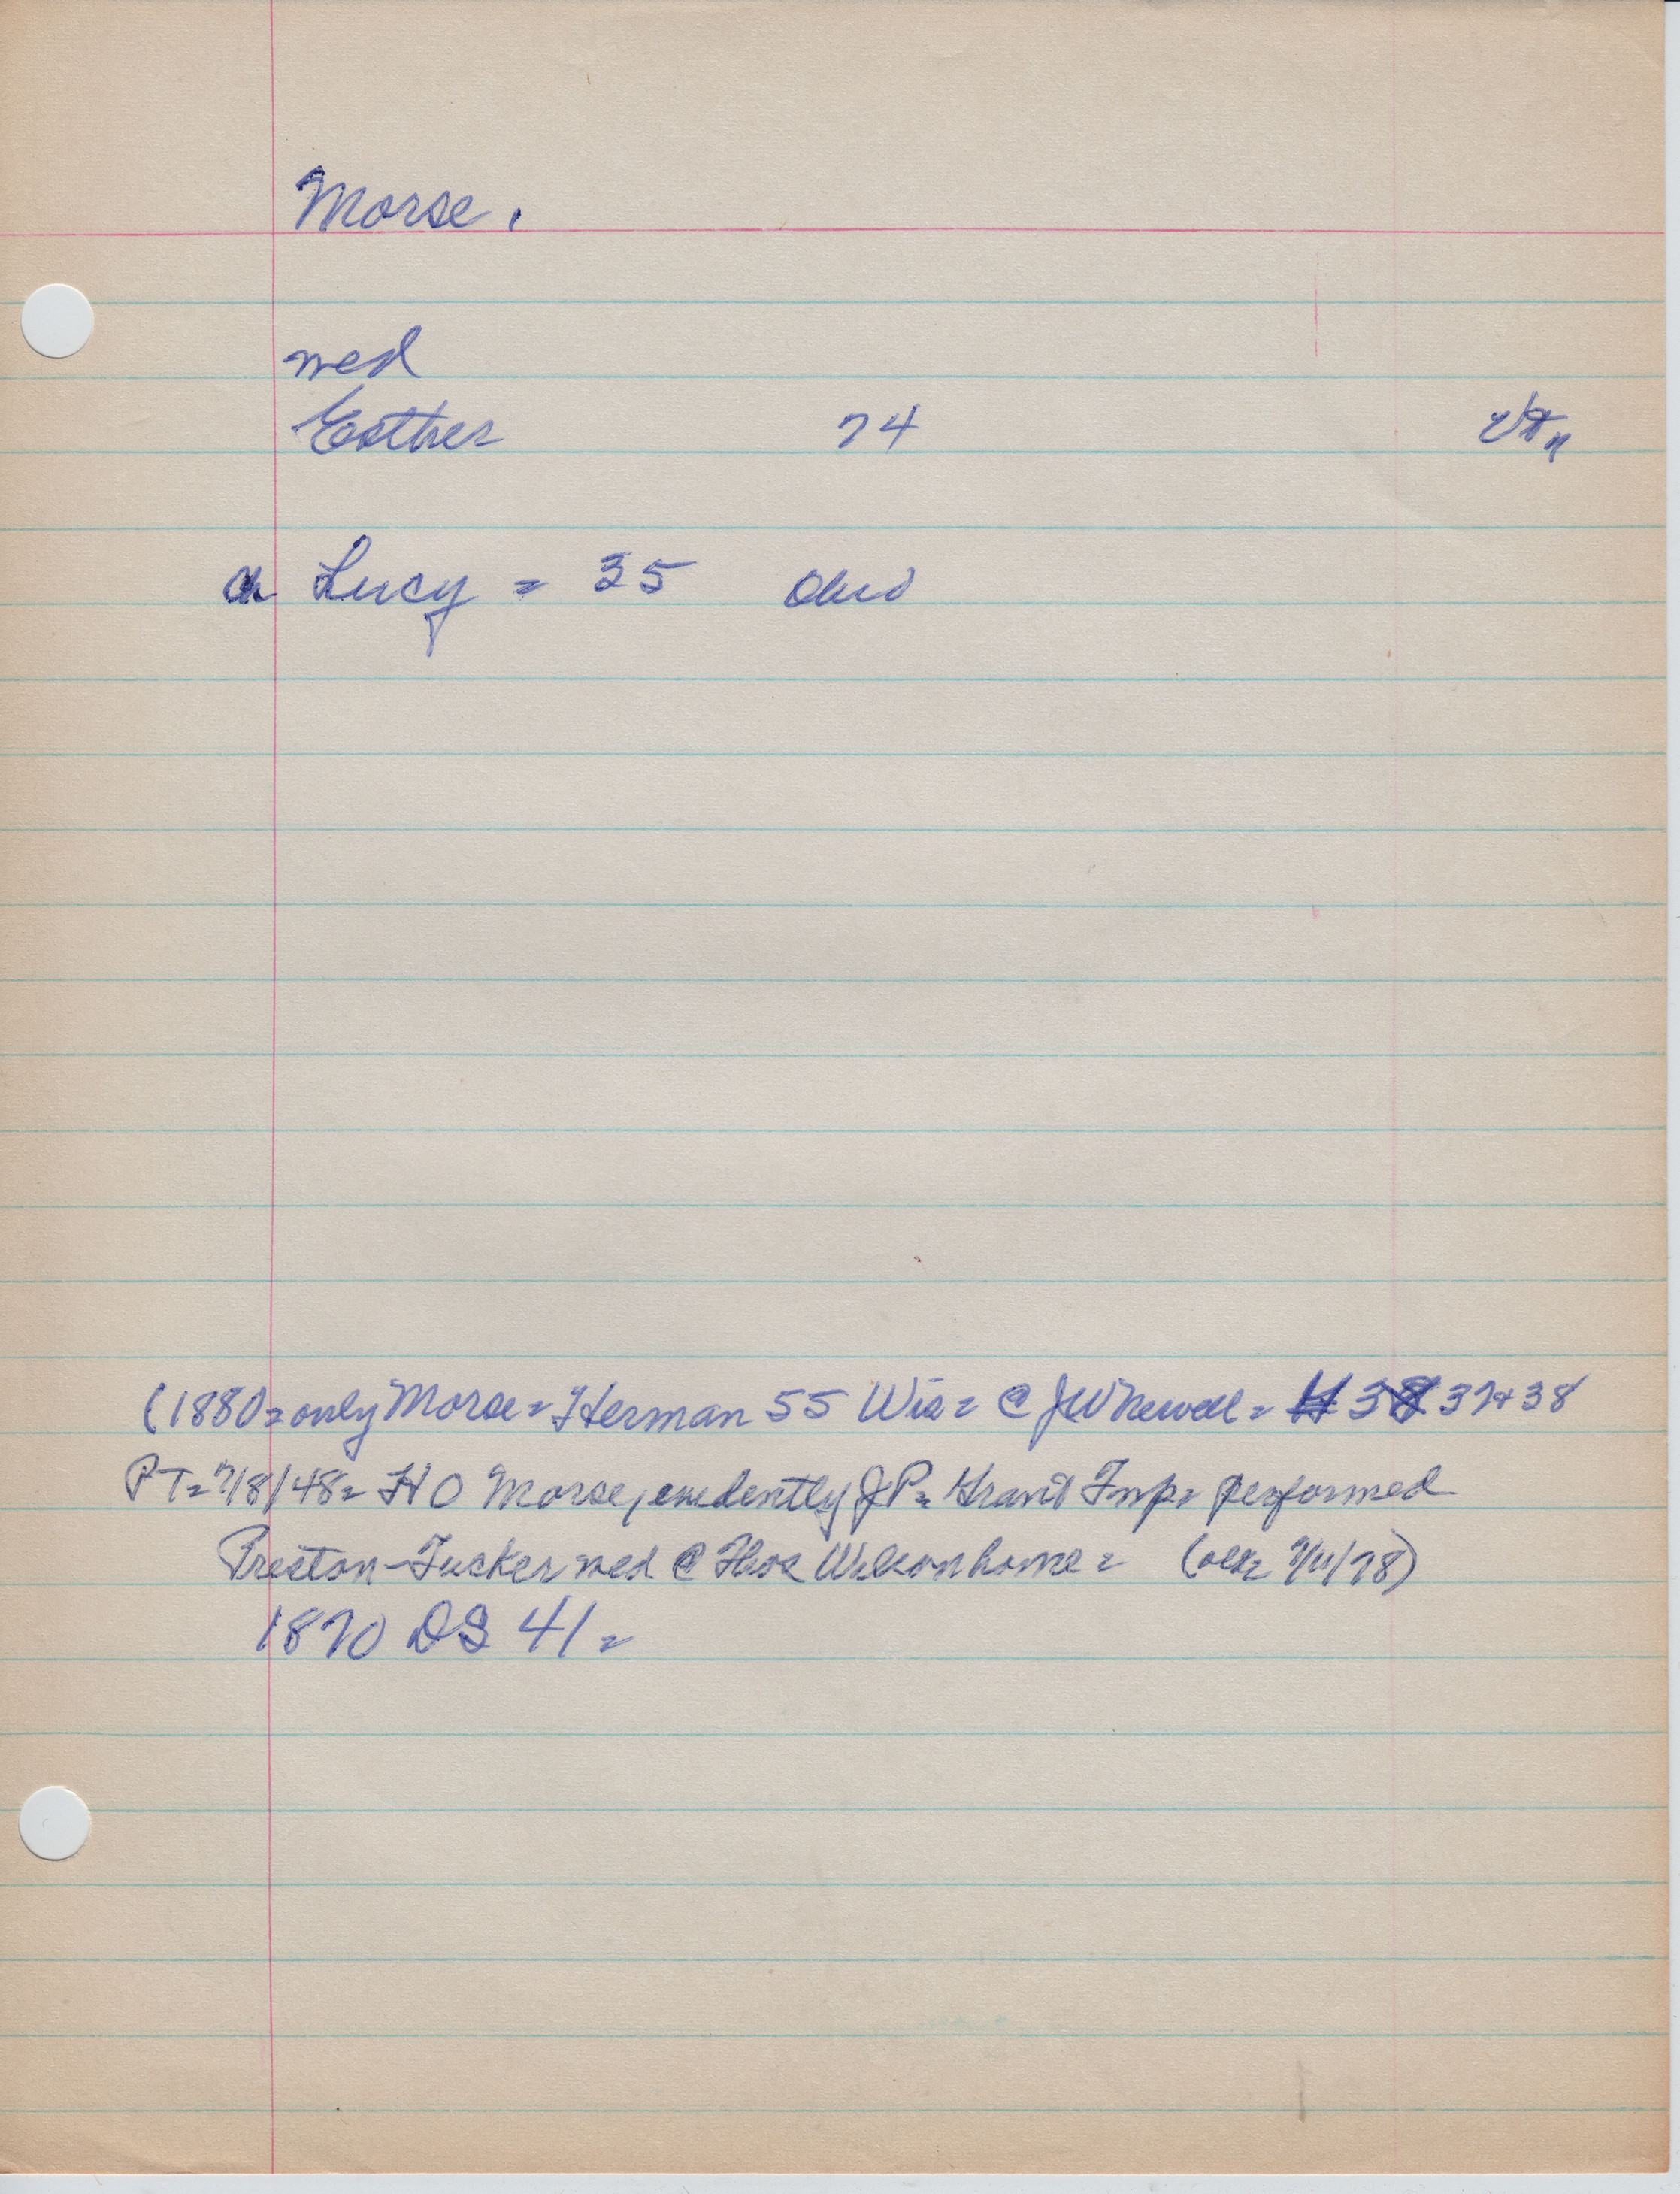 Morse.
wed
Esther 74 Vt
Lucy = 35 Ohio
(1880 = only Morse = Herman 55 Wis = @ JW Newell = 37+38
PT = 7/8/48 = HO Morse, evedently JP = Grant Twp = performed
Preston-Tucker wed @ Thos Wilson home = 7/11/78)
1870 DS 41 =